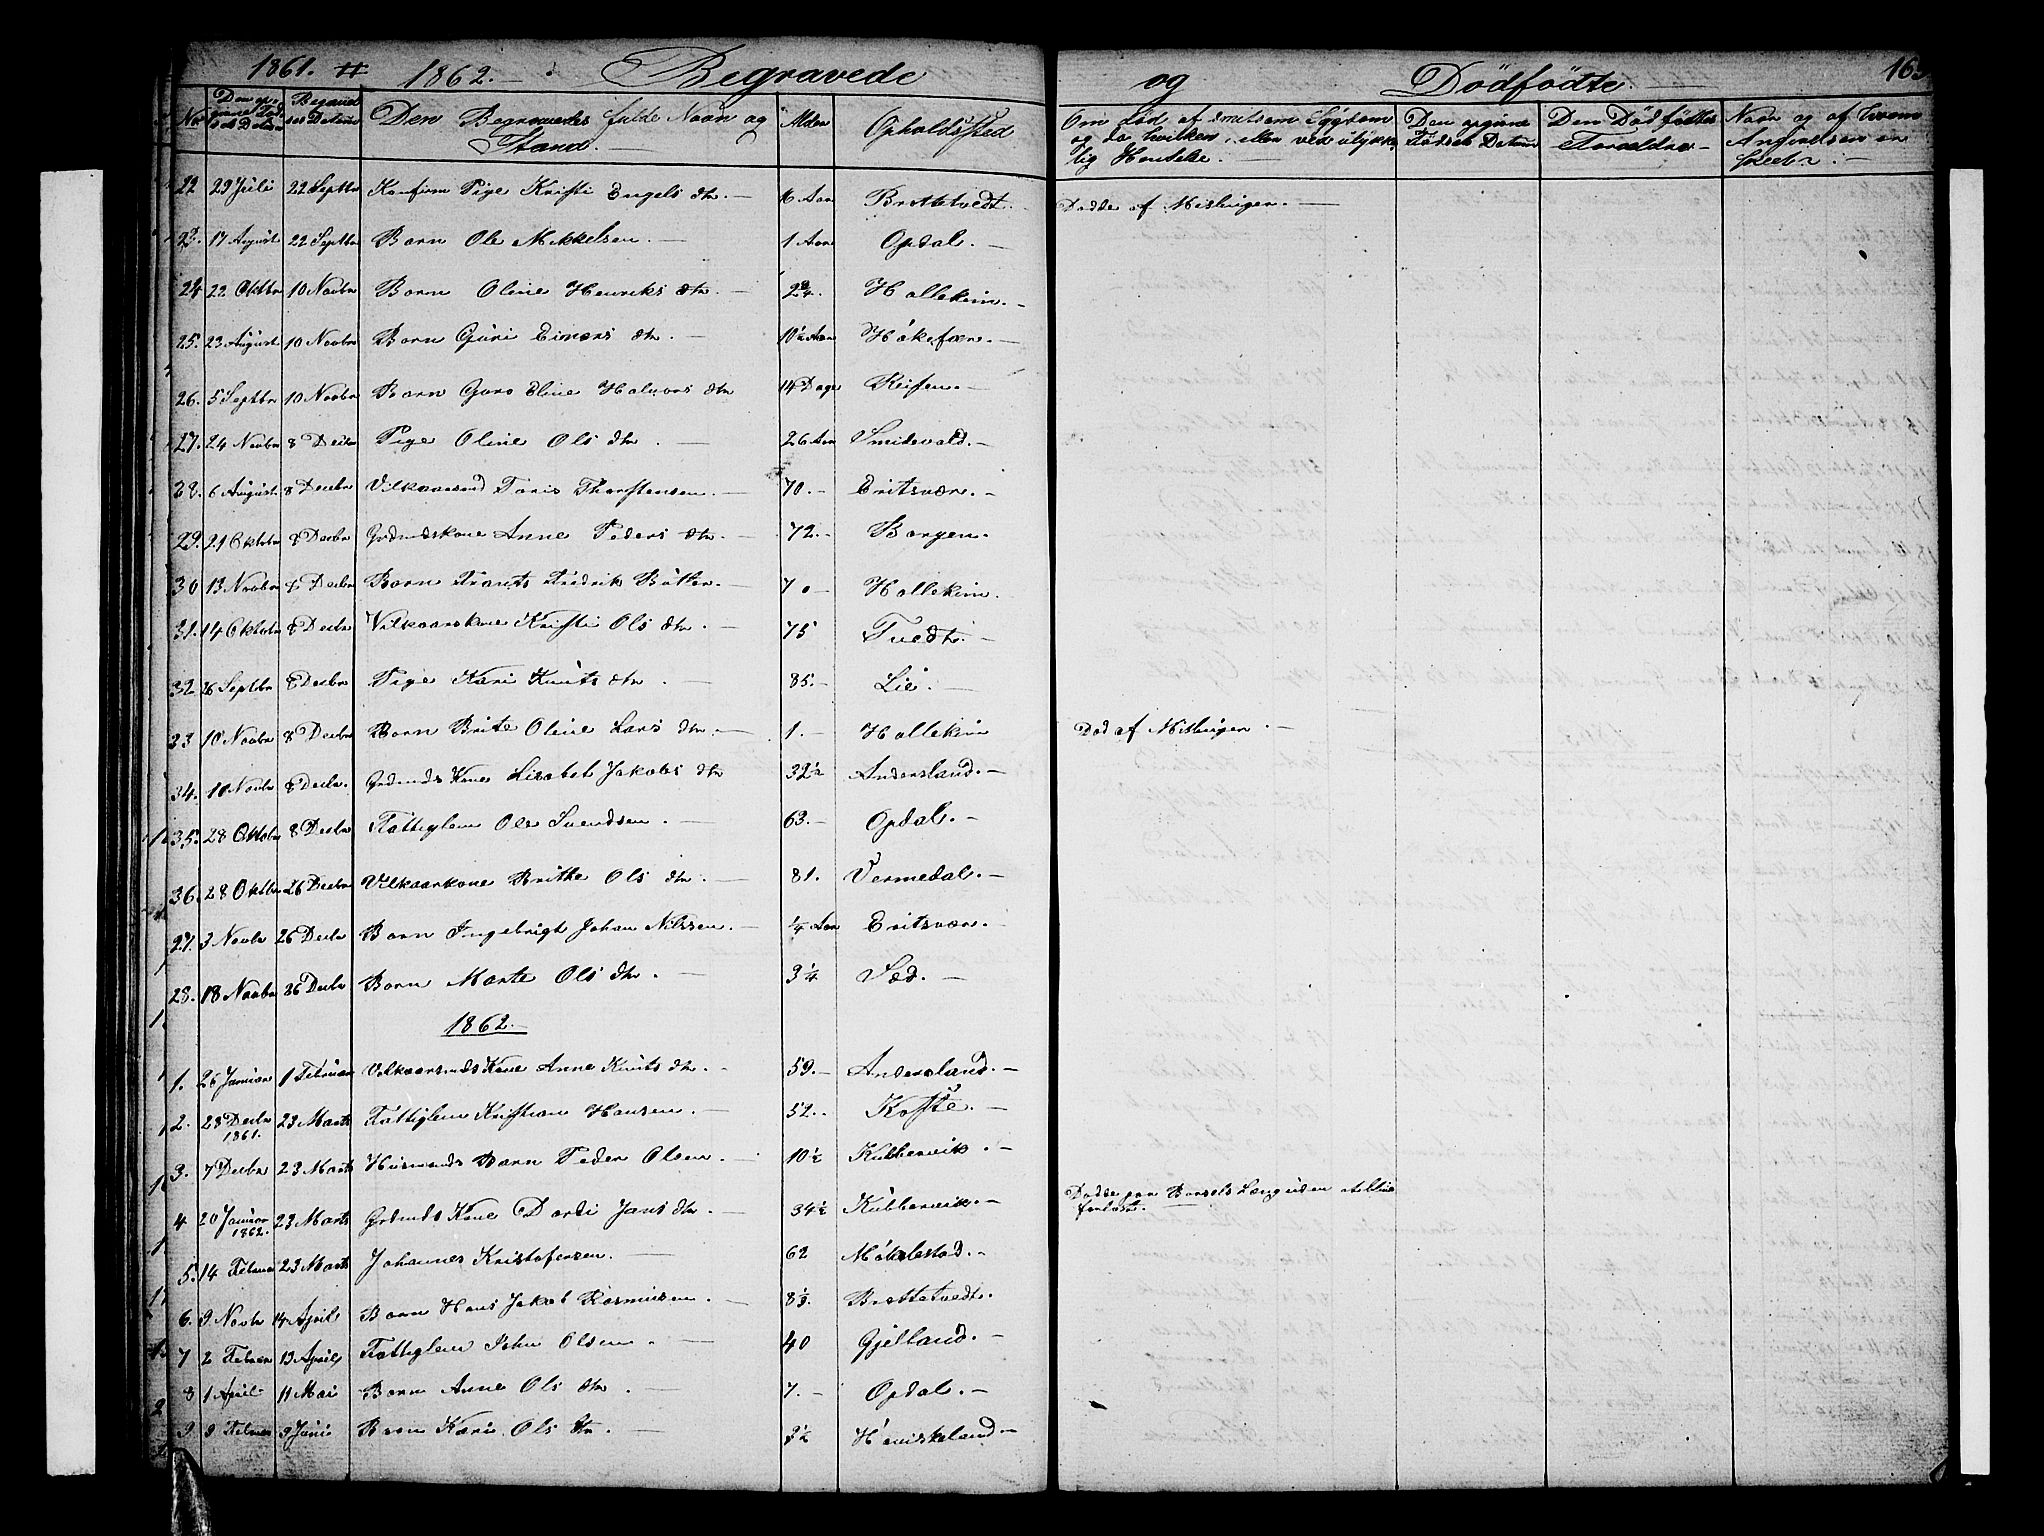 1861. # 1862. — Begravede og Dødfødte. 163
No Den op- givne Død- sds Datum Begravel ses Datum Den Begravedes fulde Navn og Stand. Alder Opholdssted Om død af smitsom Sygdom og da hvilken, eller ved ulykke- lig Hendelse. Den opgivne Fødsels Datum Den Dødfødtes Forældre Navn og af hvem Anmeldelsen er skeet.
22 29 Juli 22 Septbr Konfirm Pige Kristi Engels dtr. — 16 Aar Brattetvedt. Døde af Meslinger. —
23. 17 August 22 Septbr Barn Ole Mikkelsen. — 1 Aar Opdal. —
24 22 Oktbr 10 Novbr Barn Oline Henriks dtr. — Hollekim. —
25. 23 August 10 Novbr Barn Guri Einars dtr. — 10½ Aar Håkefær. —
26. 5 Septbr 10 Novbr Barn Guro Eline Halvors dtr 14 Dage Reifen. —
27. 24 Novbr 8 Decbr Pige Oline Ols dtr. — 26 Aar Smidevold. —
28. 6 August 8 Decbr Vilkaarsmd Toris Thorstensen. — 70. — Eritsvær. —
29. 21 Oktobr 8 Decbr Grdmdskone Anne Peders dtr. — 72. — Borgen.
30 13 Novbr 8 Decbr Barn Frants Fredrik Bøtker. — 7 0 — Hollekim.
31. 14 Oktobr 8 Decbr Vilkaarskone Kristi Ols dtr. — 75 Tvedt. —
32 26 Septbr 8 Decbr Pige Kari Knuts dtr. — 85. — Lie. —
33 10 Novbr 8 Decbr Barn Brite Oline Lars dtr. — 1. — Hollekim Død af Meslinger. —
34. 10 Novbr 8 Decbr. Grdmds Kone Lisabet Jakobs dtr 32½ Andersland. —
35. 28 Oktobr 8 Decbr Fattiglem Ole Svendsen. — 63. — Opdal. —
36. 28 Oktbr 26 Decbr Vilkaarkone Britha Ols dtr. — 81. Vermedal. —
27. 3 Novbr 26 Decbr Barn Ingebrigt Johan Nilssen. — ¼ Aar Eritsvær. —
28. 18 Novbr 26 Decbr Barn Marte Ols dtr. — 3¼ Sæd. —
1862. —
1. 26 Januar 1 Februar Vilkaarsmds Kone Anne Knuts dtr. — 59. — Andersland. —
2. 28 Decbr 1861. 23 Marts Fattiglem Kristian Hansen. — 52. . Kofte. —
3. 7 Decbr 23 Marts Husmands Barn Peder Olsen. — 10½ Kubbervik. —
4 20 Januar 1862. 23 Marts Grdmds Kone Dorti Jans dtr. — 34½ Kubbervik. — Døde paa Barsels Læng uden at blive forløst.
5. 14 Februar 23 Marts Johannes Kristofersen. — 62 Måkelestad. —
6. 9 Novbr 14 April Barn Hans Jakob Rasmusen. — 8⅓. Brattetvedt.
7 2 Februar 13 April Fattiglem John Olsen. — 40 Gjelland. —
8 1 April 11 Mai Barn Anne Ols dtr. — 7. — Opdal. —
9 9 Februar 9 Juni Barn Kari Ols dtr. — 3½ Høviskeland. —